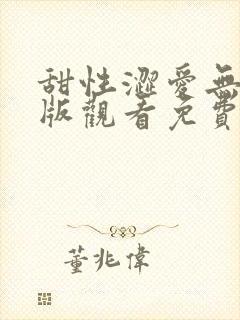 甜性澀愛無
版觀看免費
董兆偉